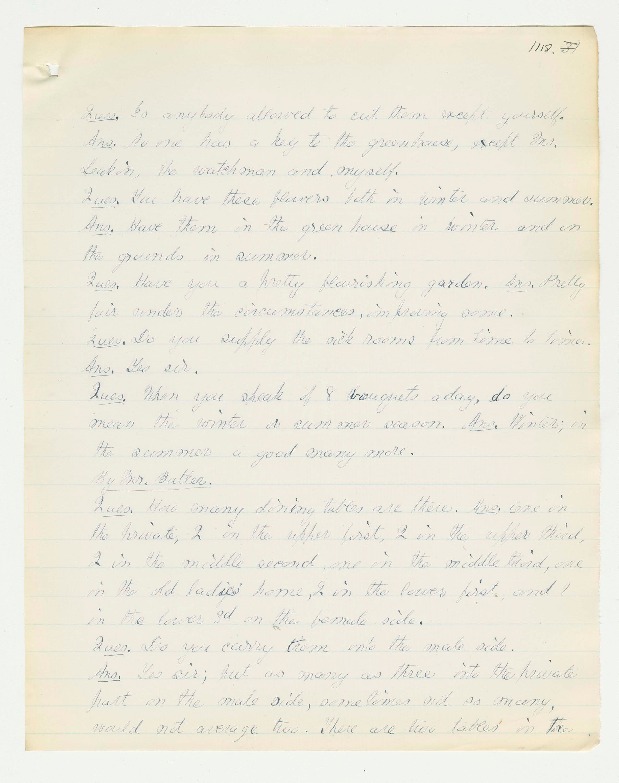 1118.
Ques. Is anybody allowed to cut them except yourself.
Ans. No one has a key to the greenhouse, except Mr.
the watchman and myself.
Ques. You have these flowers both in winter and summer.
Ans. Have them in the green house in winter and in
the grounds in summer.
Ques. Have you a pretty flourishing garden. Ans. Pretty
fair under the circumstances, improving some.
Ques. Do you supply the sick rooms from time to time.
Ans. Yes sir.
Ques. When you speak of 8 bouquets a day, do you
mean the winter or summer season. Ans. Winter; in
the summer a good many more.
By Mr.
Ques. How many dining tables are there. Ans. one in
the private, 2 in the upper first, 2 in the upper third,
2 in the middle second, one in the middle third, one
in the old ladies' home, 2 in the lower first, and 1
in the lower 3d on the female side.
Ques. Do you carry them into the male side.
Ans. Yes sir; but as many as three into the private
part on the male side, sometimes not as many,
would not average two. There are two tables in the